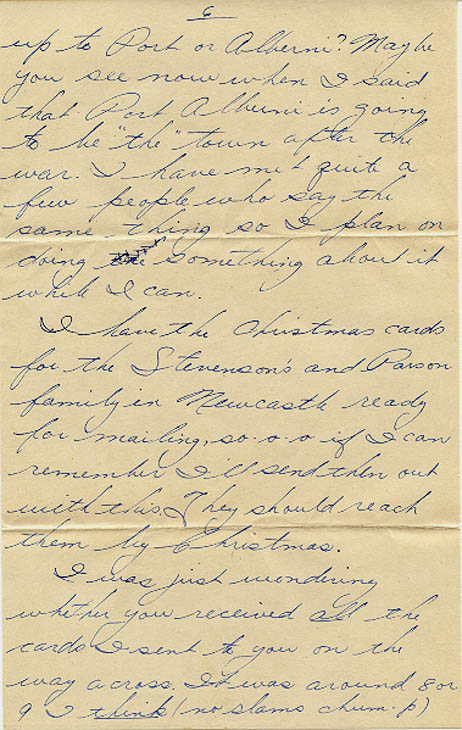 6
up to Port or Alberni? Maybe
you see now when I said
that Port Alberni is going
to be "the" town after the
war. I have met quite a
few people who say the
same thing so I plan on
doing something about it
while I can.
I have the Christmas cards
for the Stevenson's and Parson
family in Newcastle ready
for mailing, so-o-o if I can
remember I'll send then out
with this. They should reach
them by Christmas.
I was just wondering
whether you received all the
cards I sent to you on the
way across. It was around 8 or
9 I think (no slams chum. p)